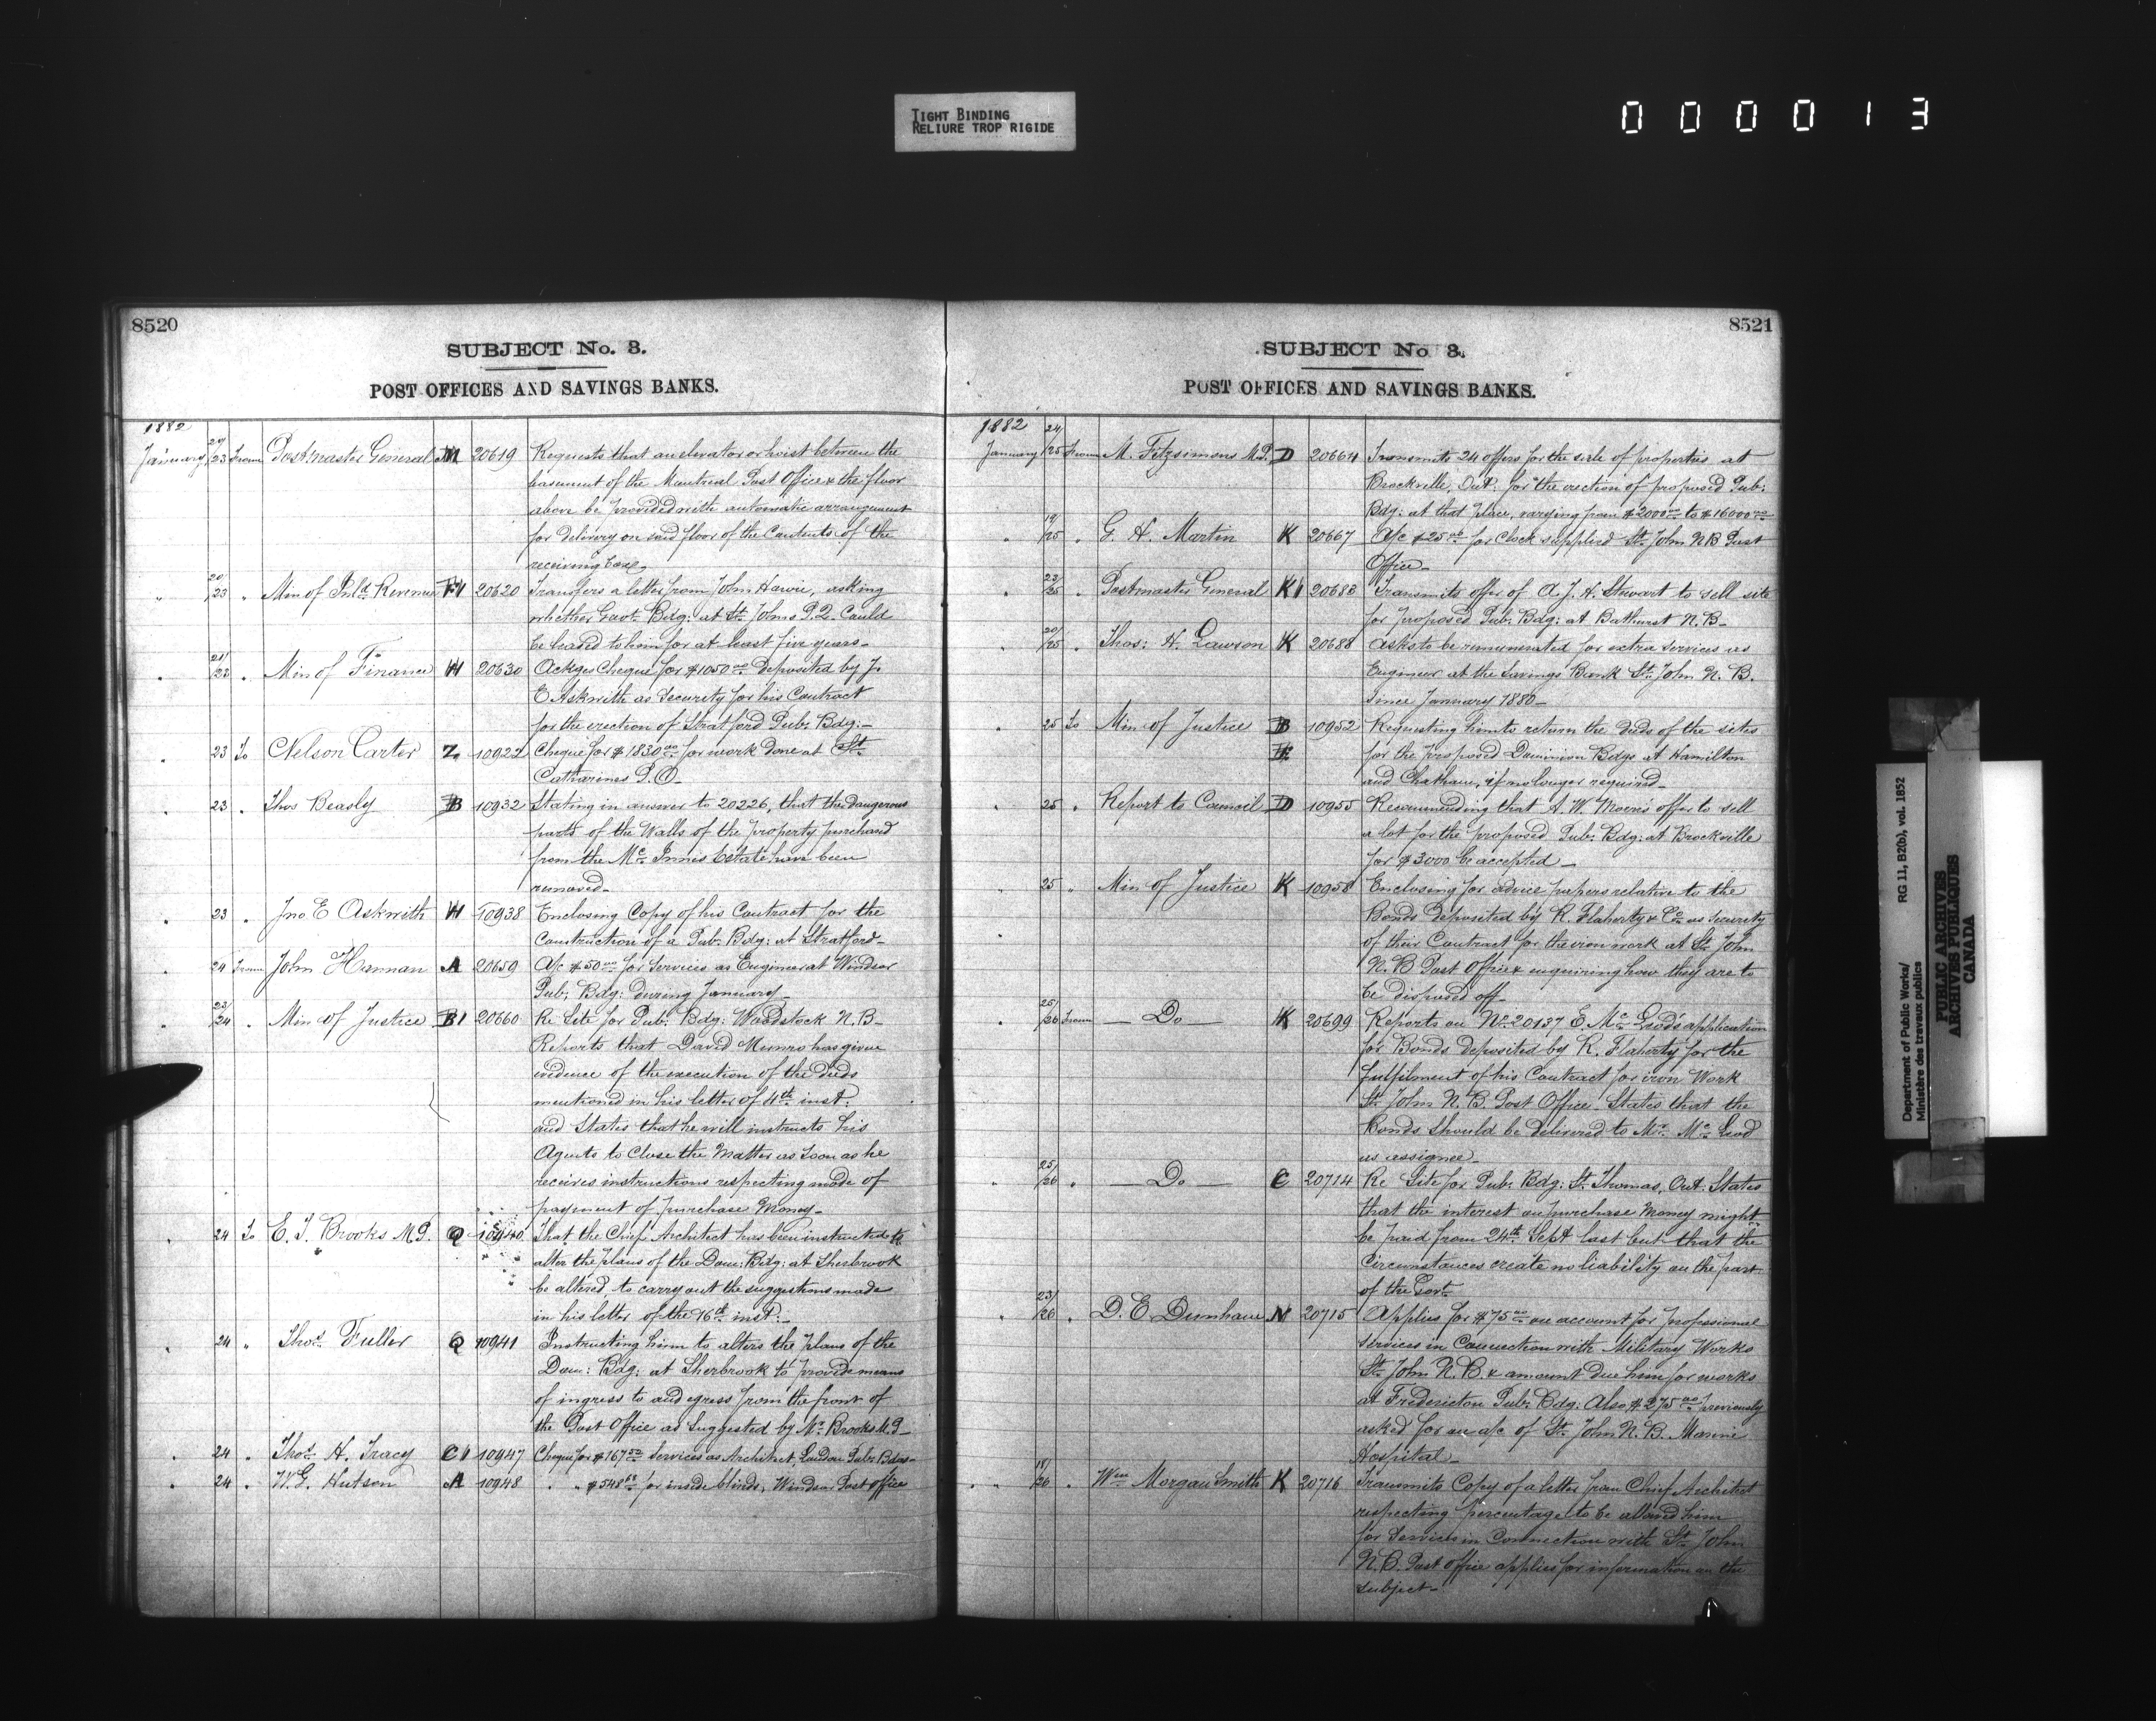 TIGHT BINDING
RELIURE TROP RIGIDE
000013
8520
SUBJECT No. 3.
POST OFFICES AND SAVINGS BANKS.
1882
January 20/23 From Postmaster General M 20619 Requests that an elevator or hoist between the
basement of the Montreal Post Office & the floor
above be provided with automatic arrangement
for delivery on said floor of the Contents of the
receiving box
" 20/23 " Min of Inld Revenue H 20620 Transfers a letter from John Howie, asking
whether Govt. Bdg: at St. Johns P.Q. Could
be leased to him for at least five years.
" 21/23 " Min of Finance H 20630 Ackges Cheque for $1050 00 Deposited by J.
E Askwith as Security for his Contract
for the erection of Stratford Pub: Bdg:
" 23 To Nelson Carter Z. 10922 Cheque for $1830 00 for work done at St.
Catharines P.O.
" 23 " Thos Beasly B 10932 Stating in answer to 20226, that the dangerous
parts of the Walls of the property purchased
from the McInnis Estate have been
removed.
" 23 " Jno E Askwith H 10938 Enclosing Copy of his Contract for the
Construction of a Pub: Bdg: at Stratford
" 24 From John Hannan A 20659 A/c $50 00 for Services as Engineer at Windsor
Pub: Bdg: during January
" 23/24 " Min of Justice B1 20660 Re Site for Pub: Bdg: Woodstock N.B.
Reports that David Munro has given
evidence of the execution of the deeds
mentioned in his letter of 4th inst.
and States that he will instructs his
Agents to Close the Matter as soon as he
receives instructions respecting mode of
payment of purchase Money
" 24 To E. T. Brooks M.P. Q 10940 That the Chief Architect has been instructed to
alter the plans of the Dom: Bdg: at Sherbrook
be altered, to carry out the suggestions made
in his letter of the 16th inst:
" 24 " Thos. Fuller Q 10941 Instructing him to alters the plans of the
Dom: Bdg: at Sherbrook to provide means
of ingress to and egress from the front of
the Post Office as suggested by Mr. Brooks M.P.
" 24 " Thos. H. Tracy C1 10947 Cheque for $167 50 Services as Architect, London Pub: Bdgs
" 24 " W.G. Hutson A 10948 " " $548 for inside blinds, Windsor Post office
8521
SUBJECT No 3.
POST OFFICES AND SAVINGS BANKS.
1882
January 24/25 From M. Fitzsimons M.P. D 20664 Transmits 24 offers for the sale of properties at
Brockville, Ont: for the erection of proposed Pub:
Bdg: at that place, varying from $2000 00 to $16000 00
" 19/25 " G. H. Martin K 20667 A/c $25 00 for Clock supplied St. John N B Post
Office
" 23/25 " Postmaster General K1 20683 Transmits offer of A. J. H. Stewart to sell site
for proposed Pub: Bdg: at Bathurst N.B.
" 20/25 " Thos: H. Lawson K 20688 Asks to be remunerated for extra services as
Engineer at the Savings Bank St. John N. B.
since January 1880
" 25 To Min of Justice B 10952 Requesting him to return the deeds of the sites
for the proposed Dominion Bdgs at Hamilton
and Chatham, if no longer required
" 25 " Report to Council D 10955 Recommending that A. W. Moore's offer to sell
a lot for the proposed Pub: Bdg: at Brockville
for $3000 be accepted
" 25 " Min of Justice K 10958 Enclosing for advice papers relative to the
Bonds deposited by R. Flaherty & Co as security
of their Contract for the iron work at St. John
N. B Post Office & enquiring how they are to
be disposed off
" 25/26 From Do K 20699 Reports on No. 20137 E. McLeod's application
for Bonds deposited by R. Flaherty for the
fulfilment of his Contract for iron Work
St. John N. B. Post Office States that the
Bonds should be delivered to Mr. McLeod
as assignee
" 25/26 " Do C 20714 Re Site for Pub: Bdg: St. Thomas, Ont. States
that the interest on purchase Money might
be paid from 24th Sept last but that the
Circumstances create no liability on the part
of the Govt.
" 23/26 " D. E Dunham N 20715 Applies for $75 00 on account for professional
services in Connection with Military Works
St. John N. B. & amount due him for works
at Fredericton Pub: Bdg: Also $275 00 previously
asked for on a/c of St. John N. B. Marine
Hospital
" 18/26 " Wm Morgan Smith K 20716 Transmits Copy of a letter from Chief Architect
respecting percentage to be allowed him
for Services in Connection with St. John
N. B. Post office applies for information on the
subject
Department of Public Works/ RG 11, B2(b), vol. 1852
Ministère des travaux publics
PUBLIC ARCHIVES
ARCHIVES PUBLIQUES
CANADA